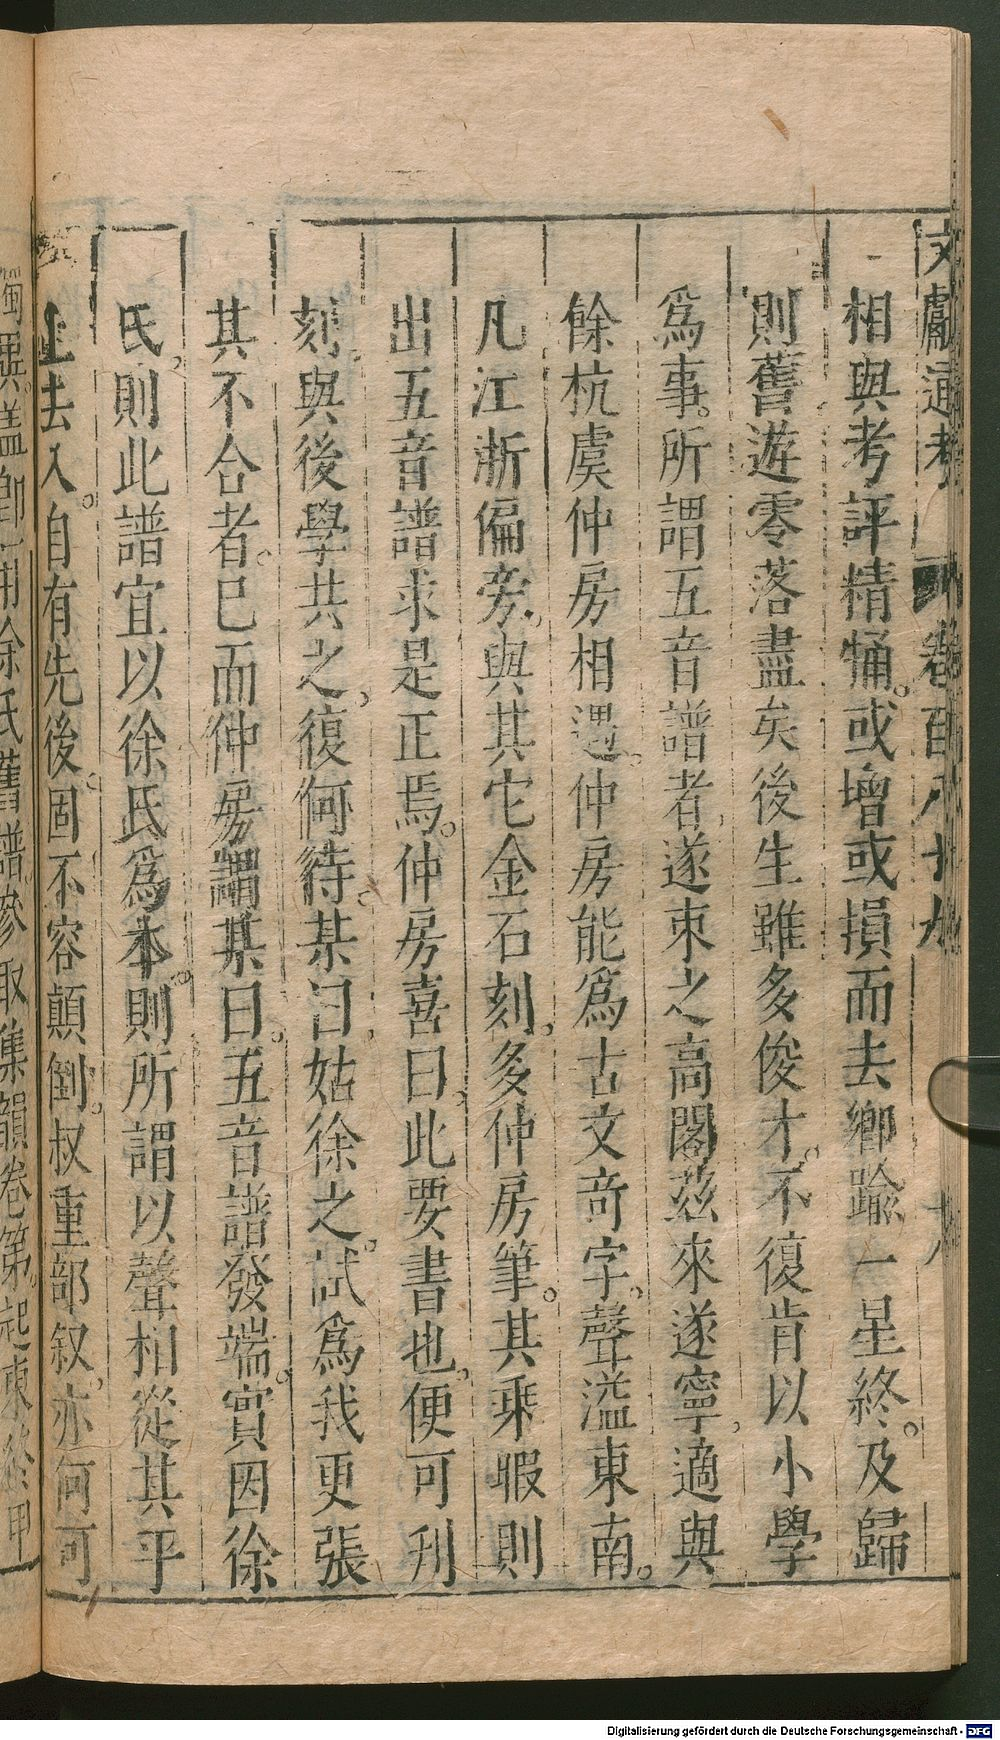 文獻通考 卷百八十九 十八
相與考評精觕。或增或損而去鄉踰一星終。及歸
則舊遊零落盡矣後生雖多俊才。不復肯以小學
爲事。所謂五音譜者遂束之高閣茲來遂寧適與
餘杭虞仲房相遇。仲房能爲古文奇字。聲溢東南。
凡江浙偏旁。與其它金石刻多仲房筆。其乗暇則
出五音譜求是正焉。仲房喜曰此要書也便可刋
刻。與後學共之復何待。某曰姑徐之。試爲我更張
其不合者。已而仲房謂某曰。五音譜發端。實因徐
氏則此譜宜以徐氏爲本。則所謂以聲相從其平
上去入。自有先後。固不容顛倒。叔重部叙亦何可
獨異。蓋卽用徐氏舊譜參取集韻卷第。起東終甲
Digitalisierung gefördert durch die Deutsche Forschungsgemeinschaft - DFG